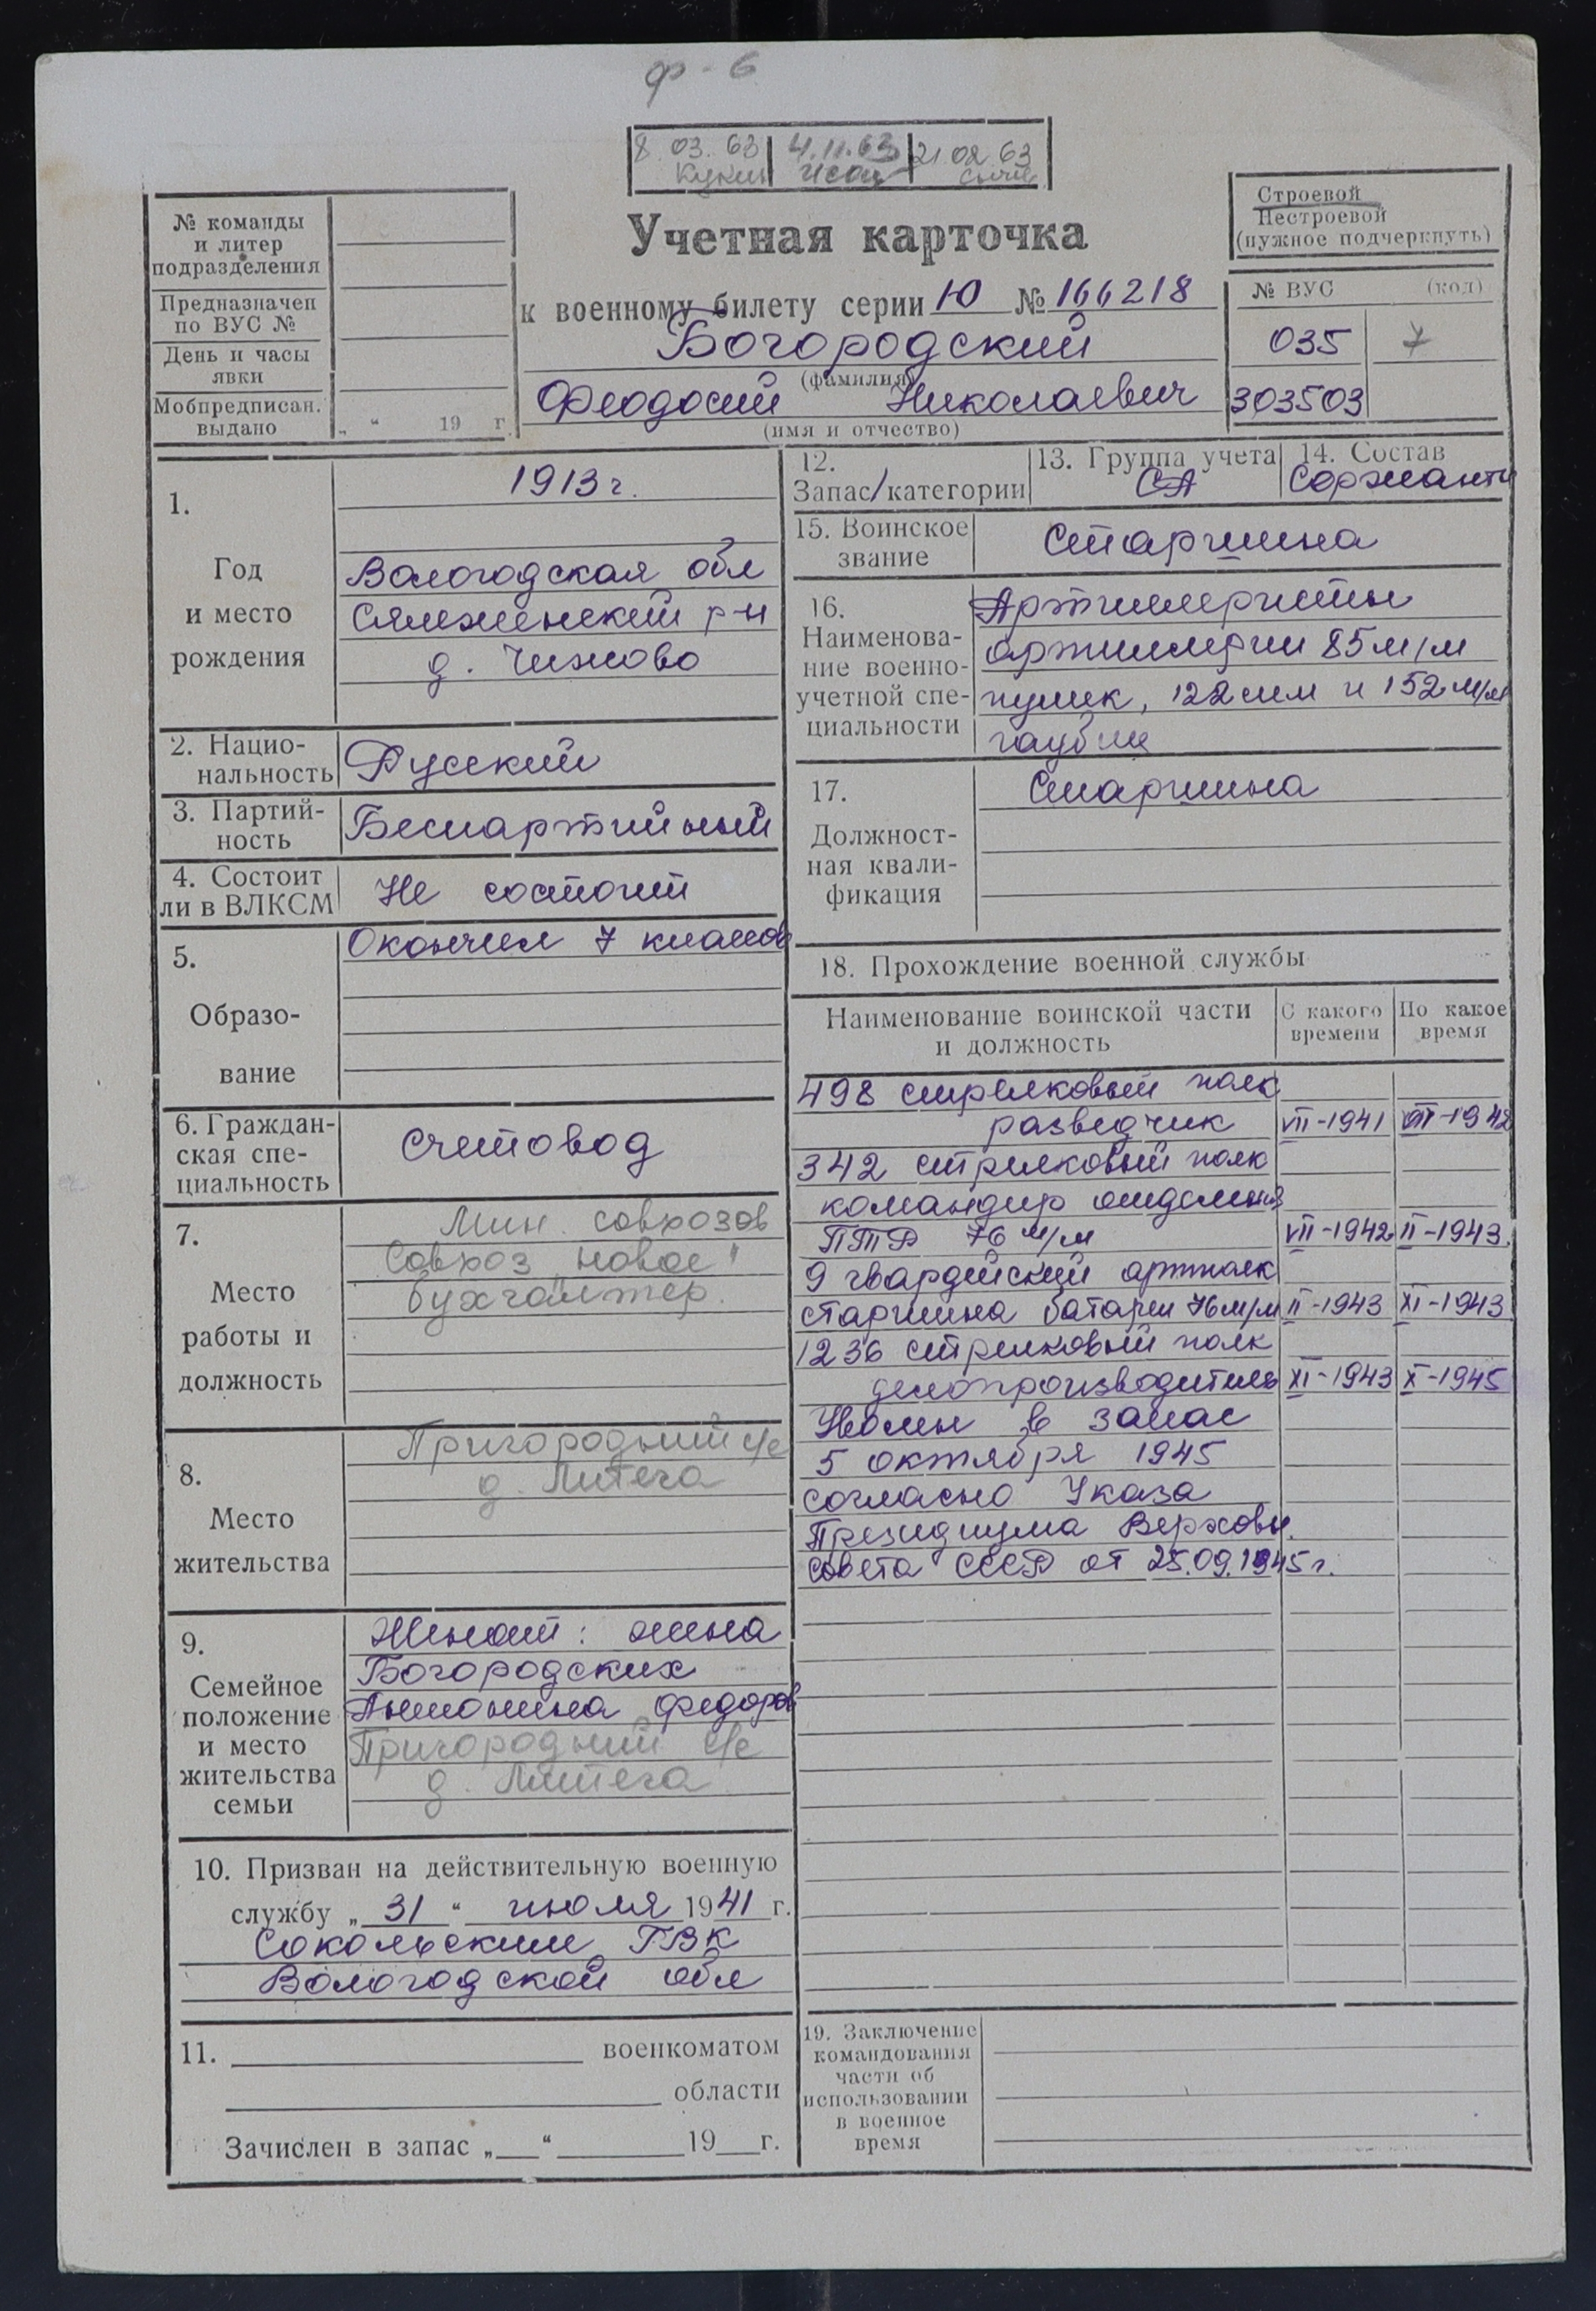 ф - 6
8.03.63 | 4.11.63 | 21 02 63
№ команды
и литер
подразделения
Предназначен
по ВУС №
День и часы
явки
Мобпредписан.
выдано
„ “ 19 г.
Учетная карточка
к военному билету серии Ю № 166218
Богородский
(фамилия)
Феодосий Николаевич
(имя и отчество)
Строевой
Нестроевой
(нужное подчеркнуть)
№ ВУС (код)
035 7
303503
1.
Год
и место
рождения
1913 г.
Вологодская обл
Сямженский р-н
д. Чижово
2. Нацио-
нальность
Русский
3. Партий-
ность
Беспартийный
4. Состоит
ли в ВЛКСМ
Не состоит
5.
Образо-
вание
Окончил 7 классов
6. Граждан-
ская спе-
циальность
Счетовод
7.
Место
работы и
должность
Мин. совхозов
Совхоз „новое"
бухгалтер.
8.
Место
жительства
Пригородный с/с
д. Литега
9.
Семейное
положение
и место
жительства
семьи
Женат: жена
Богородских
Антонина Федоров
Пригородный с/с
д. Литега
10. Призван на действительную военную
службу „31“ июля 1941 г.
Сокольским ГВК
Вологодской обл
11. военкоматом
области
Зачислен в запас „ “ 19 г.
12.
Запас/категории
13. Группа учета
СА
14. Состав
Сержанты
15. Воинское
звание
Старшина
16.
Наименова-
ние военно-
учетной спе-
циальности
Артиллеристы
артиллерии 85 м/м
пушек, 122 мм и 152 м/м
гаубиц
17.
Должност-
ная квали-
фикация
Старшина
18. Прохождение военной службы
Наименование воинской части
и должность
С какого
времени
По какое
время
498 стрелковый полк
разведчик VII-1941 VII-1942
342 стрелковый полк
командир отделения
ПТР 76 м/м VII-1942 II-1943.
9 гвардейский артполк
старшина батареи 76м/м II-1943 XI-1943
1236 стрелковый полк
делопроизводитель XI-1943 X-1945
Уволен в запас
5 октября 1945
согласно Указа
Президиума Верховн.
совета СССР от 25.09.1945 г.
19. Заключение
командования
части об
использовании
в военное
время